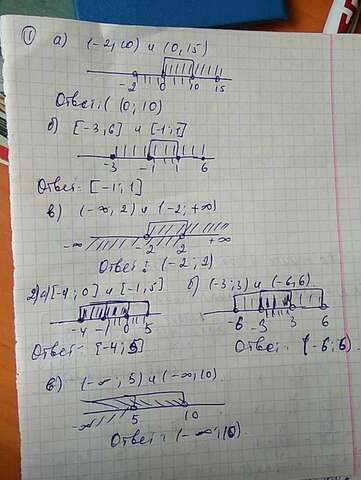 ① а) (-2; 10) и (0; 15)
-2 0 10 15
Ответ: (0; 10)
б) [-3; 6] и [-1; 1]
-3 -1 1 6
Ответ: [-1; 1]
в) (-∞; 2) и (-2; +∞)
-∞ -2 2 +∞
Ответ: (-2; 2)
2) а) [-4; 0] и [-1; 5] б) (-3; 3) и (-6; 6)
-4 -1 0 5 -6 -3 3 6
Ответ: [-4; 5] Ответ: (-6; 6)
в) (-∞; 5) и (-∞; 10)
-∞ 5 10
Ответ: (-∞; 10)